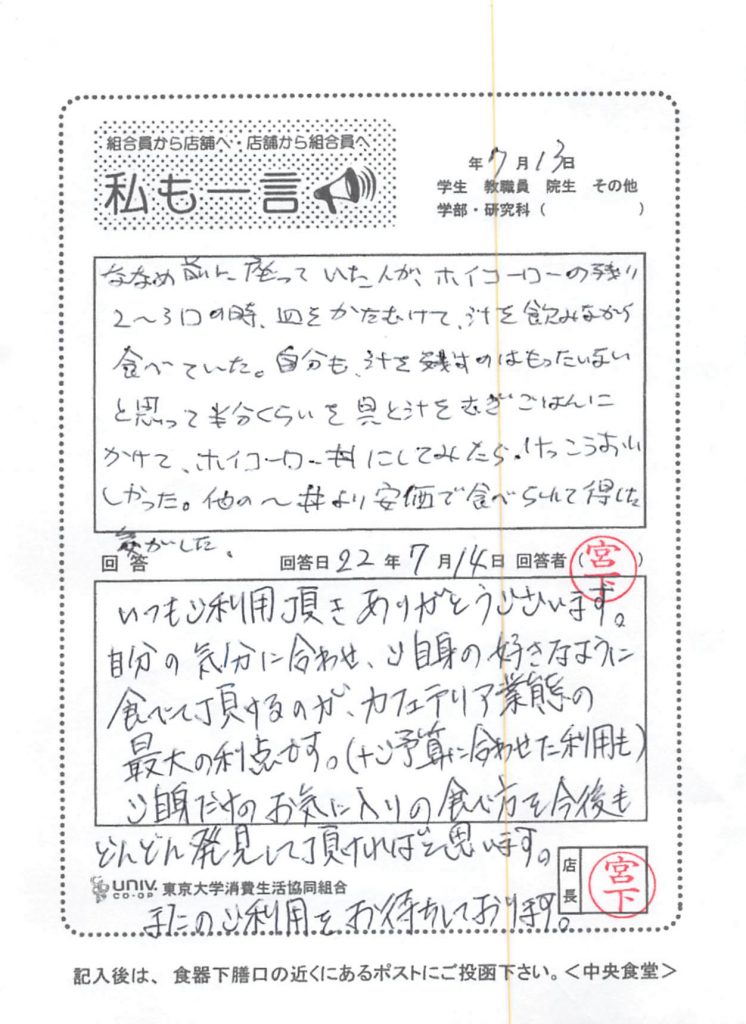 組合員から店舗へ・店舗から組合員へ
私も一言
年7月13日
学生 教職員 院生 その他
学部・研究科( )
ななめ前に座っていた人が、ホイコーローの残り
2〜3口の時、皿をかたむけて、汁を飲みながら
食べていた。自分も、汁を残すのはもったいない
と思って半分くらいを具と汁をむぎごはんに
かけて、ホイコーロー丼にしてみたら、けっこうおい
しかった。他の〜丼より安価で食べられて得した
気がした。
回答 回答日22年7月14日 回答者(宮下)
いつもご利用頂きありがとうございます。
自分の気分に合わせ、ご自身の好きなように
食べて頂けるのが、カフェテリア業態の
最大の利点です。(+ご予算に合わせた利用も)
ご自身だけのお気に入りの食べ方を今後も
どんどん発見して頂ければと思います。
店長 宮下
UNIV. CO-OP 東京大学消費生活協同組合
またのご利用をお待ちしております。
記入後は、食器下膳口の近くにあるポストにご投函下さい。<中央食堂>